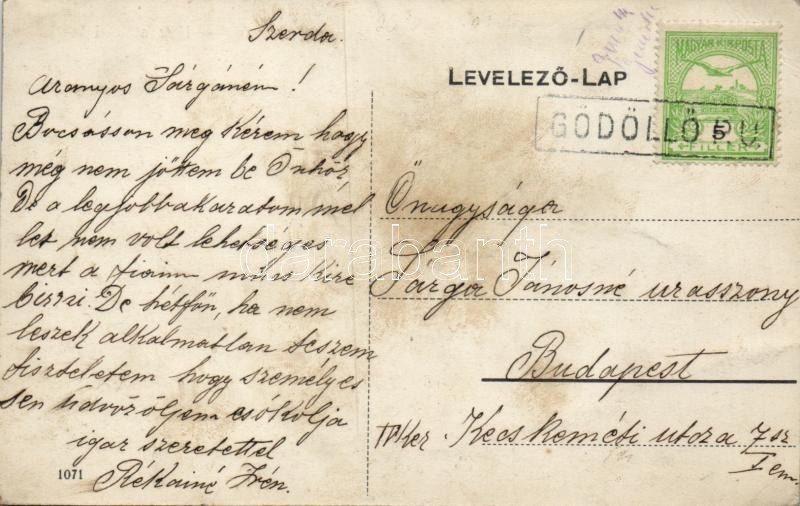 Szerda.
Aranyos Sárgáném!
Bocsásson meg kérem hogy
még nem jöttem be Önhöz
De a legjobb akaratom mel
let nem volt lehetséges
mert a fiaim nincs kire
bizzni. De hétfőn, ha nem
leszek alkalmatlan teszem
tiszteletem hogy személyes
sen üdvözöljem csókolja
igaz szeretettel
Rékainé Irén.
1071
LEVELEZŐ-LAP
MAGYAR KIR. POSTA
5
FILLÉR
GÖDÖLLŐ P.U.
Őnagysága
Sárga Jánosné urasszony
Budapest
IV Ker. Kecskeméti utcza 7 sz
I em.
darabanth